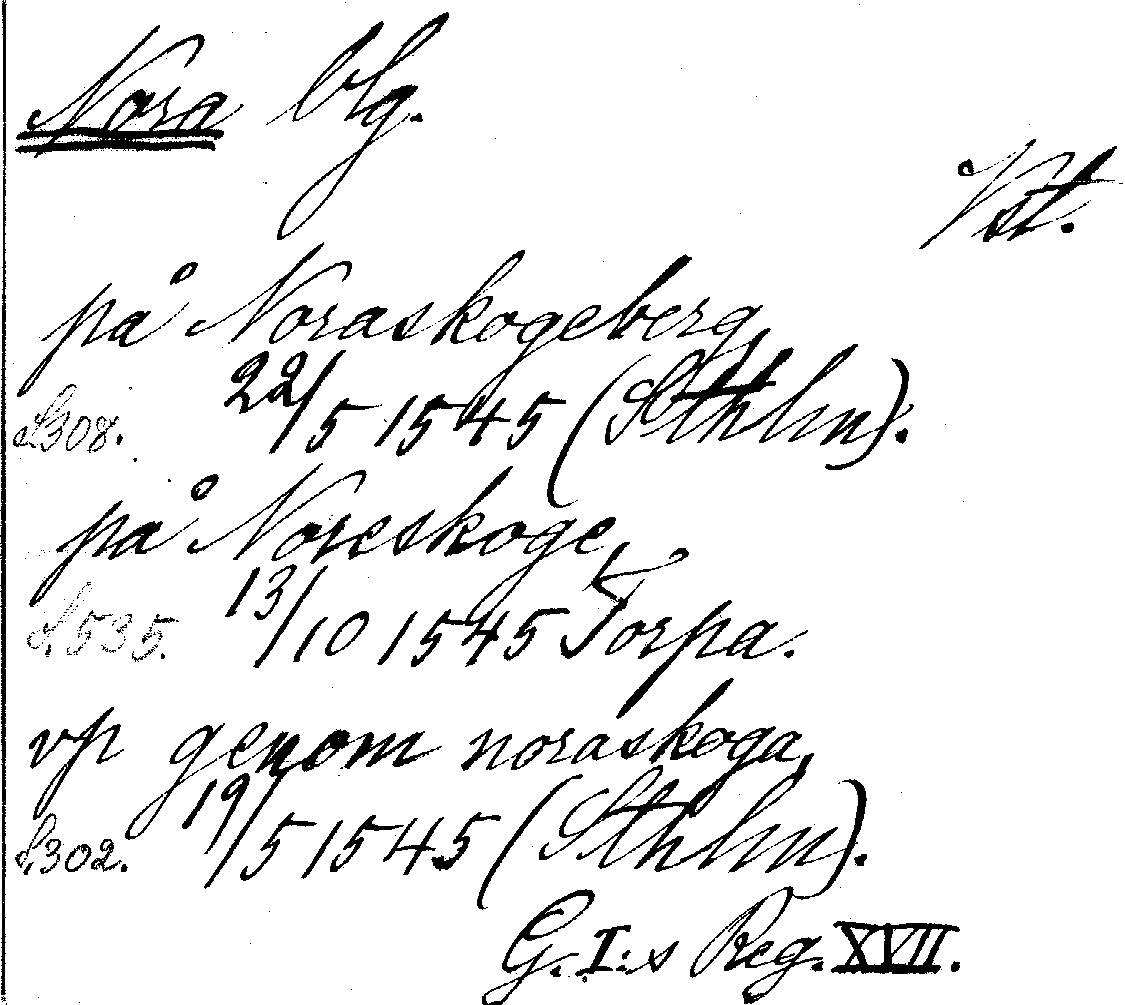 Nora blg.
Vst.
på Noraskogeberg,
S.308. 22/5 1545 (Sthlm).
på Noreskoge,
S.535. 13/10 1545 Torpa.
vp genom noraskoga,
S.302. 19/5 1545 (Sthlm).
G.I:s Reg. XVII.